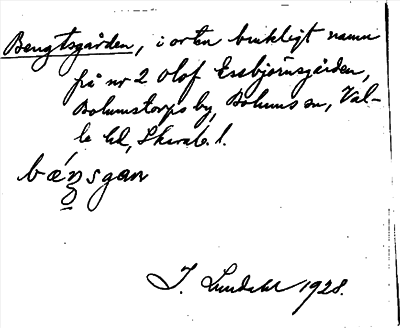 Bengtsgården, i orten brukligt namn
på nr 2 Olof Essbjörnsgården,
Bolumstorps by, Bolums sn, Val-
le hd, Skarab. l.
bǽŋsgan
I. Lundahl 1928.